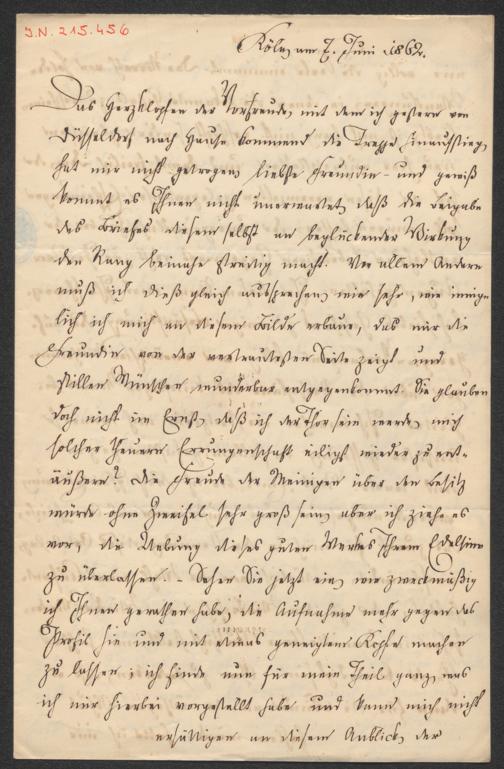 I.N. 215.456
Köln am 7. Juni 1862.
Das Herzklopfen der Vorfreude, mit dem ich gestern von
Düsseldorf nach Hause kommend die Treppe hinaufstieg,
hat mir nicht getrogen, liebste Freundin – und gewiß
kommt es Ihnen nicht unerwartet, daß die Beigabe
des Briefes diesem selbst an beglückender Wirkung
den Rang beinahe streitig macht. Vor allem Andern
muß ich dieß gleich aussprechen, wie sehr, wie innig-
lich ich mich an diesem Bilde erbaue, das mir die
Freundin von der vertrautesten Seite zeigt und
stillen Wünschen wunderbar entgegenkommt. Sie glauben
doch nicht im Ernst, daß ich der Thor sein werde, mich
solcher theuern Errungenschaft eiligst wieder zu ent-
äußern? Die Freude der Meinigen über den Besitz
würde ohne Zweifel sehr groß sein, aber ich ziehe es
vor, die Uebung dieses guten Werkes Ihrem Edelsinn
zu überlassen. – Sehen Sie jetzt ein, wie zweckmäßig
ich Ihnen gerathen habe, die Aufnahme mehr gegen das
Profil hin und mit etwas geneigtem Kopfe machen
zu lassen; ich finde nun für mein Theil ganz, was
ich mir hierbei vorgestellt habe und kann mich nicht
ersättigen an diesem Anblick, der